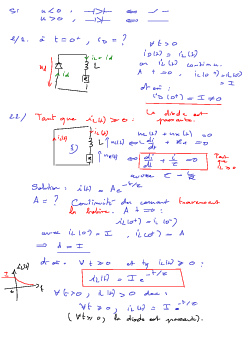 Si u<0, ⊣▷⊢ ⇔
u>0, ⊣▷⊢ ⇔
2/2. à t=0⁺, i_D = ?
∀ t>0
i_D(t) = i_L(t)
or i_L(t) continu.
A t=0, i_L(0⁺)=i_L(0⁻)
= I
d'où :
i_D(0⁺) = I ≠ 0
La diode est passante.
22/ Tant que i_L(t) ≥ 0 :
u_L(t) + u_R(t) = 0
⇔ L di/dt + Ri = 0
⇔ di/dt + i/τ = 0
Tant que i_L ≥ 0
avec τ = L/R
Solution : i(t) = A e^{-t/τ}
A = ? Continuité du courant traversant
la bobine. A t=0 :
i_L(0⁺) = i_L(0⁻)
avec i_L(0⁻) = I, i_L(0⁺) = A
⇒ A = I
d'où ∀ t ≥ 0 et tq i_L(t) ≥ 0 :
i_L(t) = I e^{-t/τ}
∀ t>0, i_L(t) > 0 donc :
∀ t ≥ 0, i_L(t) = I e^{-t/τ}
(∀ t ≥ 0, la diode est passante).